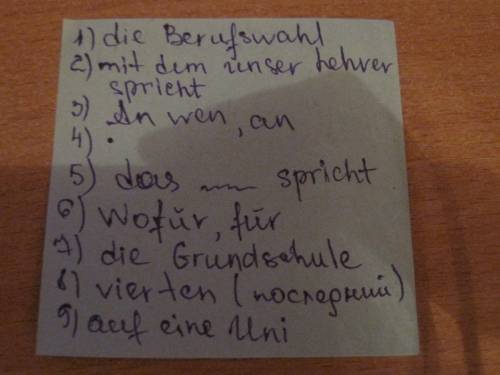 1) die Berufswahl
2) mit dem unser Lehrer
spricht
3) An wen, an
4) •
5) das ~~ spricht
6) Wofür, für
7) die Grundschule
8) vierten (последний)
9) auf eine Uni